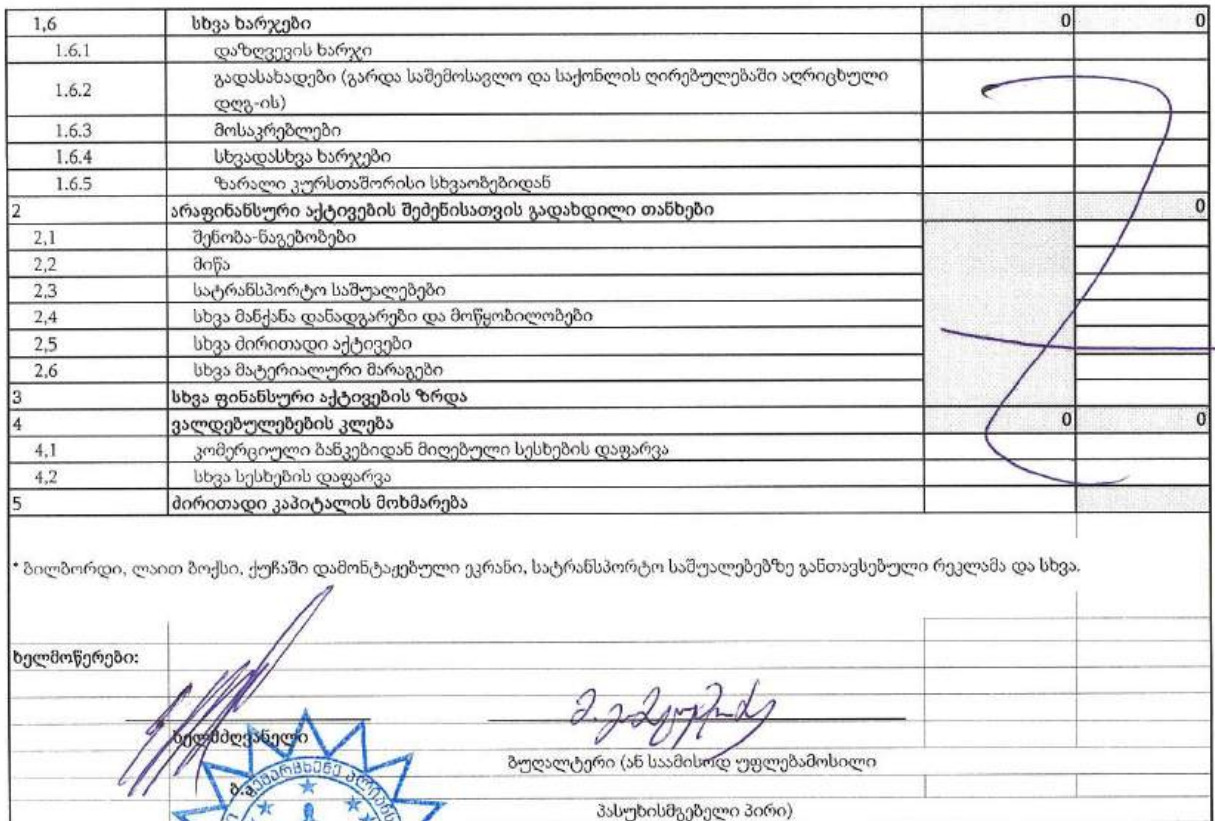 1,6 სხვა ხარჯები 0 0
1.6.1 დაზღვევის ხარჯი
1.6.2 გადასახადები (გარდა საშემოსავლო და საქონლის ღირებულებაში აღრიცხული
დღგ-ის)
1.6.3 მოსაკრებლები
1.6.4 სხვადასხვა ხარჯები
1.6.5 ზარალი კურსთაშორისი სხვაობებიდან
2 არაფინანსური აქტივების შეძენისათვის გადახდილი თანხები 0
2,1 შენობა-ნაგებობები
2,2 მიწა
2,3 სატრანსპორტო საშუალებები
2,4 სხვა მანქანა დანადგარები და მოწყობილობები
2,5 სხვა ძირითადი აქტივები
2,6 სხვა მატერიალური მარაგები
3 სხვა ფინანსური აქტივების ზრდა
4 ვალდებულებების კლება 0 0
4,1 კომერციული ბანკებიდან მიღებული სესხების დაფარვა
4,2 სხვა სესხების დაფარვა
5 ძირითადი კაპიტალის მოხმარება
* ბილბორდი, ლაით ბოქსი, ქუჩაში დამონტაჟებული ეკრანი, სატრანსპორტო საშუალებებზე განთავსებული რეკლამა და სხვა.
ხელმოწერები:
ხელმძღვანელი
ბუღალტერი (ან საამისოდ უფლებამოსილი
ბ.ა
პასუხისმგებელი პირი)